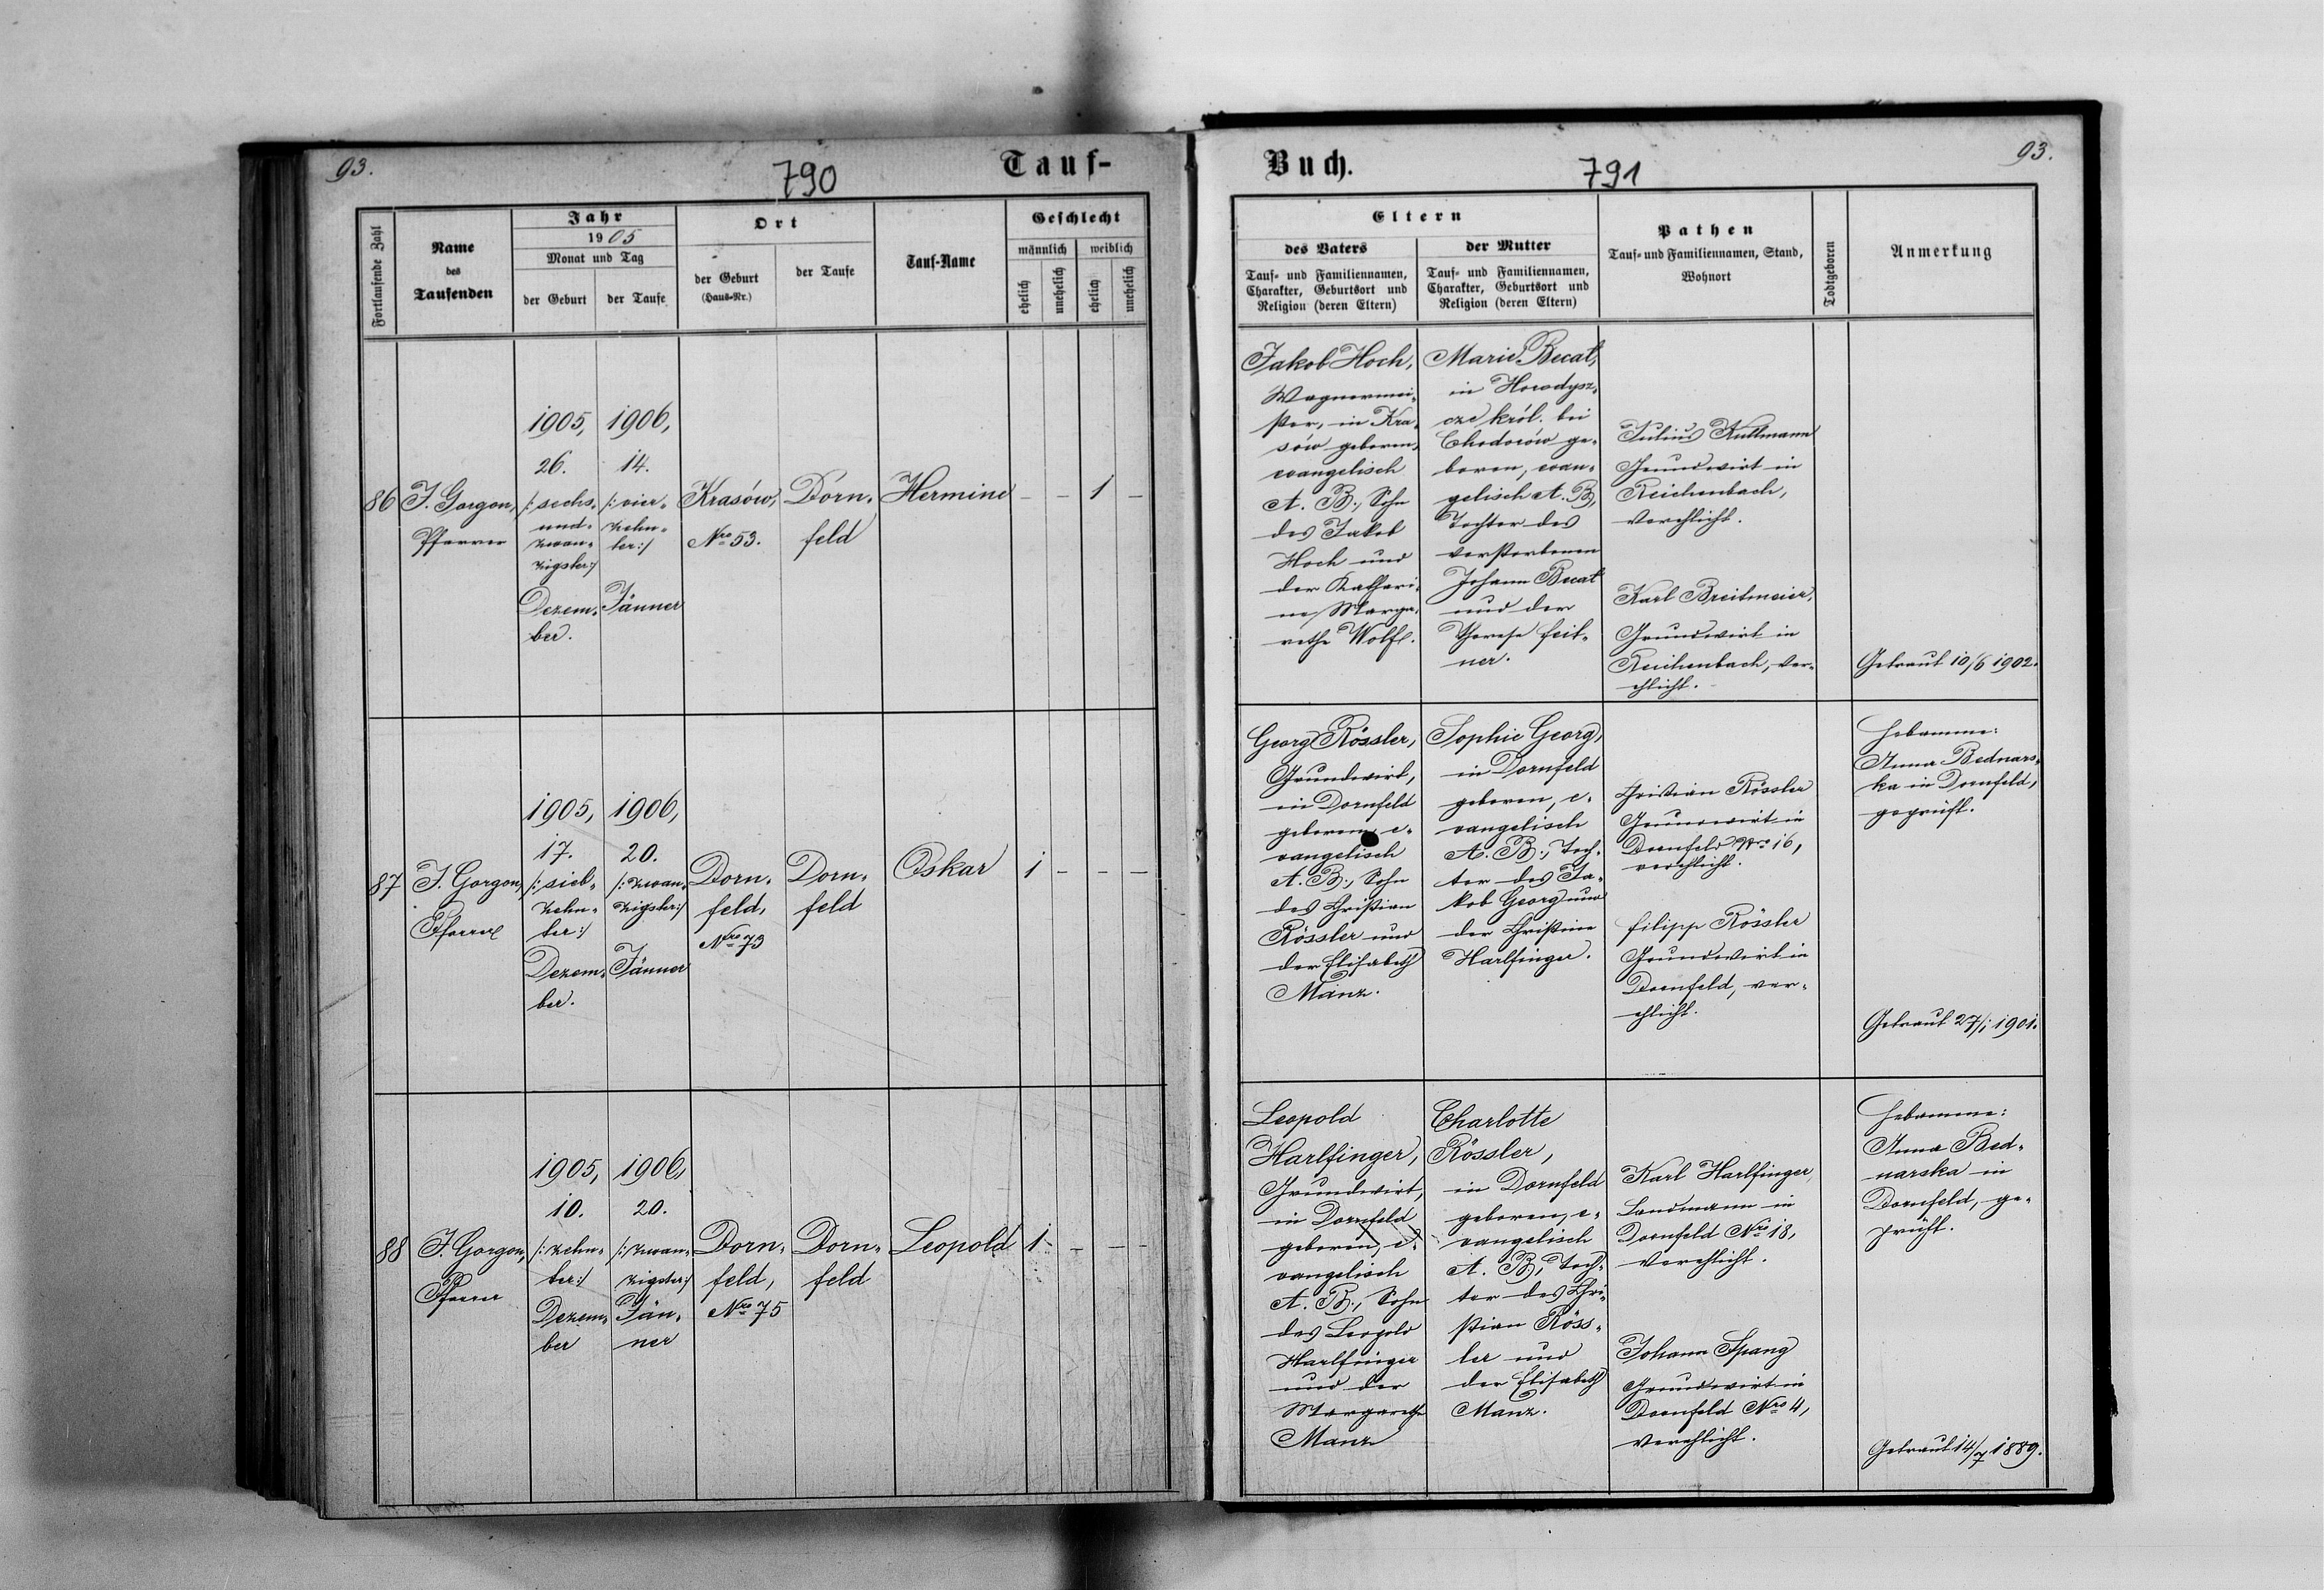 93.
790
Tauf-
Fortlaufende Zahl
Name
des
Taufenden
Jahr
1905
Monat und Tag
der Geburt
der Taufe
Ort
der Geburt
(Haus-Nr.)
der Taufe
Tauf-Name
Geschlecht
männlich
weiblich
ehelich
unehelich
ehelich
unehelich
86
J. Gorgon,
Pfarrer
1905,
26.
/: sechs-
und-
zwan-
zigster :/
Dezem-
ber.
1906,
14.
/: vier-
zehn-
ter :/
Jänner
Krasów,
Nro 53.
Dorn-
feld
Hermine
- - 1 -
87
J. Gorgon,
Pfarrer
1905,
17.
/: sieb-
zehn-
ter :/
Dezem-
ber.
1906,
20.
/: zwan-
zigster :/
Jänner
Dorn-
feld,
Nro 73
Dorn-
feld
Oskar
1 - - -
88
J. Gorgon,
Pfarrer
1905,
10.
/: zehn-
ter :/
Dezem-
ber
1906,
20.
/: zwan-
zigster :/
Jän-
ner
Dorn-
feld,
Nro 75
Dorn-
feld
Leopold
1 - - -
Buch.
791
93.
Eltern
des Vaters
Tauf- und Familiennamen,
Charakter, Geburtsort und
Religion (deren Eltern)
der Mutter
Tauf- und Familiennamen,
Charakter, Geburtsort und
Religion (deren Eltern)
Pathen
Tauf- und Familiennamen, Stand,
Wohnort
Todtgeboren
Anmerkung
Jakob Hoch,
Wagnermei-
ster, in Kra-
sów geboren,
evangelisch
A. B., Sohn
des Jakob
Hoch und
der Kathari-
na Marga-
rethe Wolf.
Marie Becat,
in Horodysz-
cze król. bei
Chodorów ge-
boren, evan-
gelisch A. B.,
Tochter des
verstorbenen
Johann Becat
und der
Therese Feit-
ner.
Julius Kullmann
Grundwirt in
Reichenbach,
verehlicht.
Karl Breitmeier,
Grundwirt in
Reichenbach, ver-
ehlicht.
Getraut 10/6 1902.
Georg Rössler,
Grundwirt,
in Dornfeld
geboren, e-
vangelisch
A. B., Sohn
des Christian
Rössler und
der Elisabeth
Manz.
Sophie Georg,
in Dornfeld
geboren, e-
vangelisch
A. B., Toch-
ter des Ja-
kob Georg und
der Christine
Harlfinger.
Christian Rössler
Grundwirt in
Dornfeld Nro 16,
verehlicht.
Filipp Rössler
Grundwirt in
Dornfeld, ver-
ehlicht.
Hebamme:
Anna Bednars-
ka in Dornfeld,
geprüft.
Getraut 27/1 1901.
Leopold
Harlfinger,
Grundwirt,
in Dornfeld
geboren, e-
vangelisch
A. B., Sohn
des Leopold
Harlfinger
und der
Margarethe
Manz
Charlotte
Rössler,
in Dornfeld
geboren, e-
vangelisch
A. B., Toch-
ter des Chri-
stian Röss-
ler und
der Elisabeth
Manz.
Karl Harlfinger,
Landmann in
Dornfeld Nro 18,
verehlicht.
Johann Spang
Grundwirt in
Dornfeld Nro 4,
verehlicht.
Hebamme:
Anna Bed-
narska in
Dornfeld, ge-
prüft.
Getraut 14/7 1889.